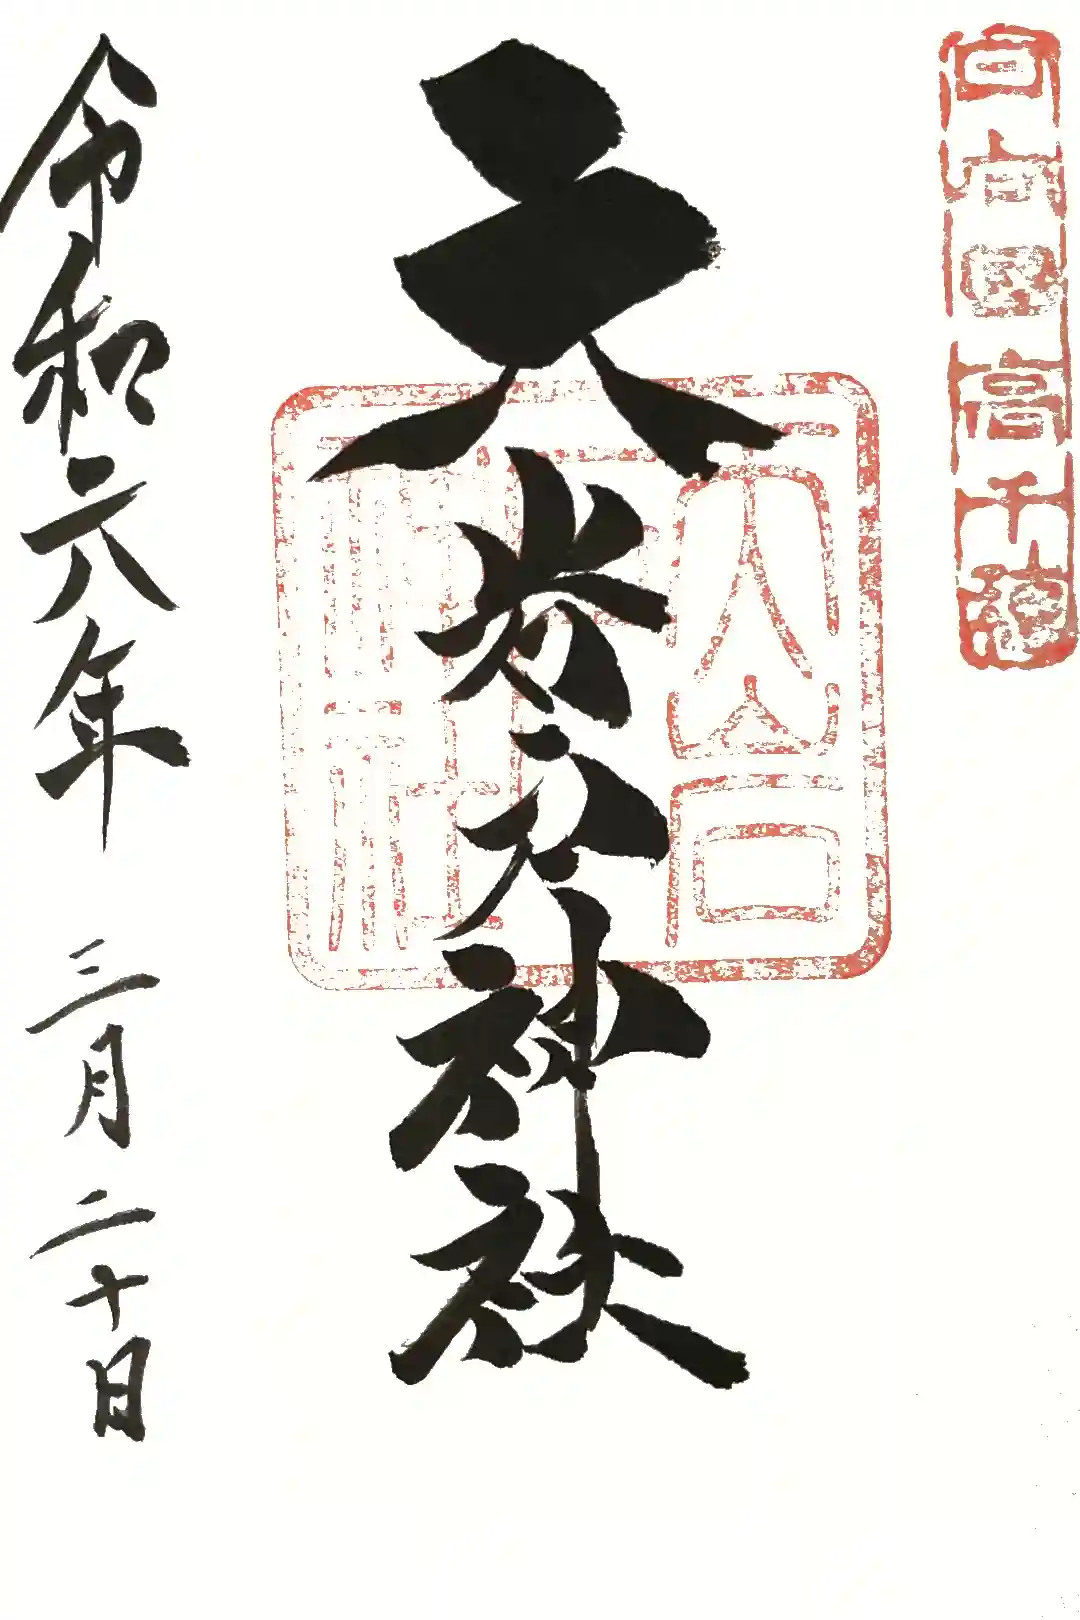 日向國高千穂
天岩戸神社
令和六年 三月二十日